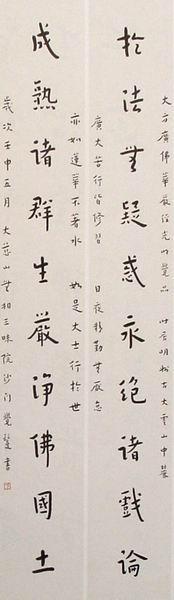 大方廣佛華嚴經光明覺品 時居明州古大雲山中
於法無疑惑永絕諸戲論
廣大苦行皆修習 日夜精勤無厭怠
亦如蓮華不著水 如是大士行於世
成熟諸群生嚴淨佛國土
歲次壬申五月大慈山無相三昧院沙門覺書